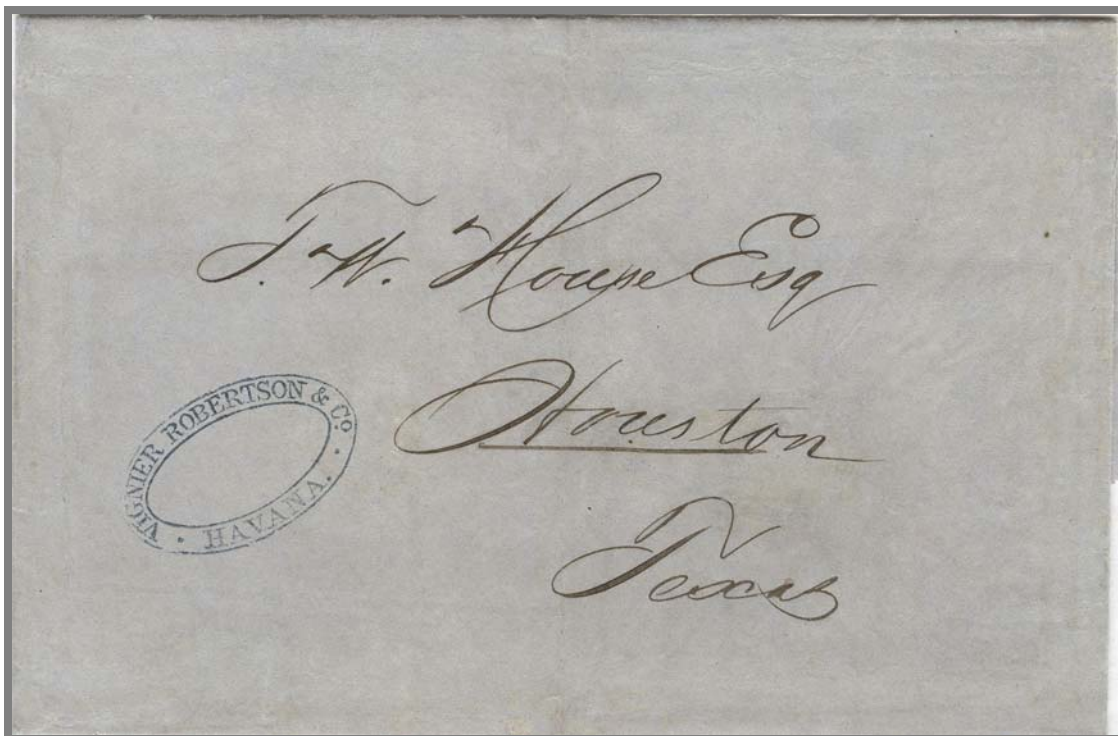 T. W. House Esq
Houston
Texas
VIGNIER ROBERTSON & Co.
HAVANA.